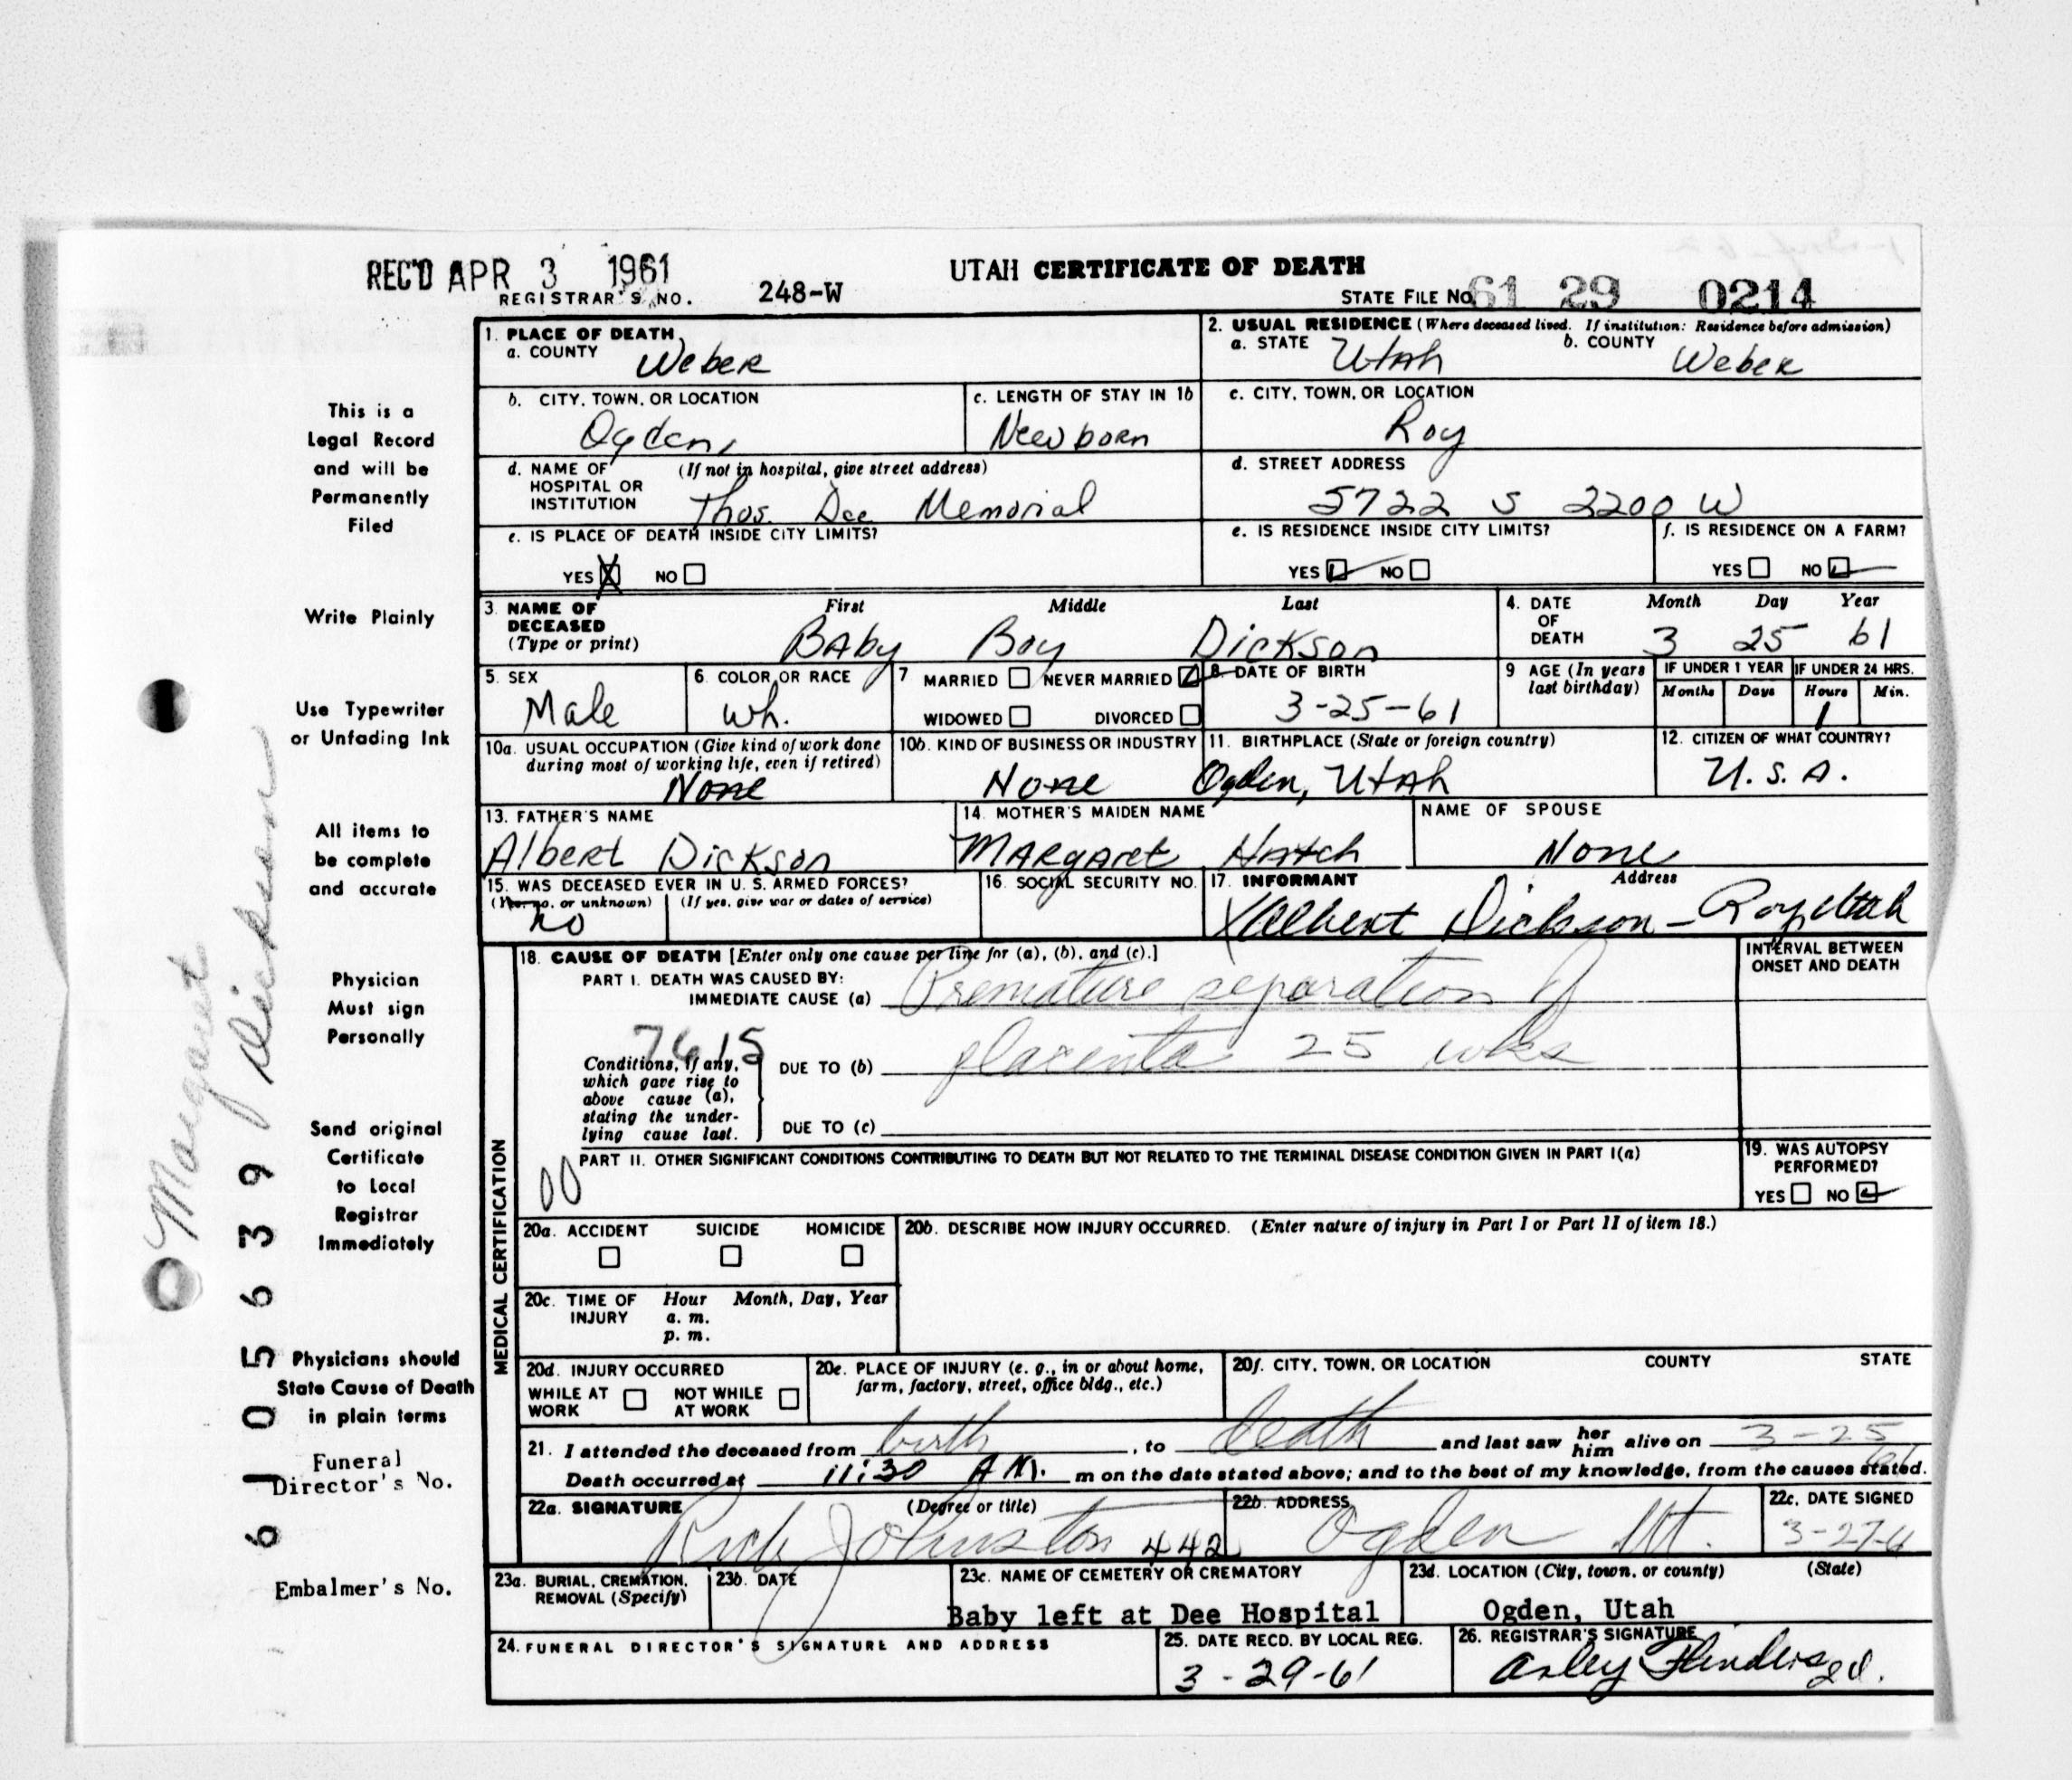 REC'D APR 3 1961
UTAH CERTIFICATE OF DEATH
REGISTRAR'S NO. 248-W
STATE FILE NO. 61 29 0214
1. PLACE OF DEATH
a. COUNTY Weber
2. USUAL RESIDENCE (Where deceased lived. If institution: Residence before admission)
a. STATE Utah b. COUNTY Weber
b. CITY, TOWN, OR LOCATION Ogden,
c. LENGTH OF STAY IN 1b Newborn
c. CITY, TOWN, OR LOCATION Roy
d. NAME OF HOSPITAL OR INSTITUTION (If not in hospital, give street address) Thos. Dee Memorial
d. STREET ADDRESS 5722 S 2200 W
e. IS PLACE OF DEATH INSIDE CITY LIMITS?
YES X NO
e. IS RESIDENCE INSIDE CITY LIMITS?
YES NO
f. IS RESIDENCE ON A FARM?
YES NO
3. NAME OF DECEASED (Type or print)
First Middle Last
Baby Boy Dickson
4. DATE OF DEATH
Month Day Year
3 25 61
5. SEX Male
6. COLOR OR RACE Wh.
7 MARRIED NEVER MARRIED
WIDOWED DIVORCED
8. DATE OF BIRTH 3-25-61
9 AGE (In years last birthday)
IF UNDER 1 YEAR IF UNDER 24 HRS.
Months Days Hours Min.
1
10a. USUAL OCCUPATION (Give kind of work done during most of working life, even if retired) None
10b. KIND OF BUSINESS OR INDUSTRY None
11. BIRTHPLACE (State or foreign country) Ogden, Utah
12. CITIZEN OF WHAT COUNTRY? U.S.A.
13. FATHER'S NAME Albert Dickson
14. MOTHER'S MAIDEN NAME Margaret Hatch
NAME OF SPOUSE None
15. WAS DECEASED EVER IN U. S. ARMED FORCES?
(Yes, no, or unknown) (If yes, give war or dates of service)
no
16. SOCIAL SECURITY NO.
17. INFORMANT Address
X Albert Dickson - Roy, Utah
MEDICAL CERTIFICATION
18. CAUSE OF DEATH [Enter only one cause per line for (a), (b), and (c).]
INTERVAL BETWEEN ONSET AND DEATH
PART I. DEATH WAS CAUSED BY:
IMMEDIATE CAUSE (a) Premature separation of
7615
Conditions, if any, which gave rise to above cause (a), stating the underlying cause last.
DUE TO (b) placenta 25 wks
DUE TO (c)
PART II. OTHER SIGNIFICANT CONDITIONS CONTRIBUTING TO DEATH BUT NOT RELATED TO THE TERMINAL DISEASE CONDITION GIVEN IN PART I(a)
00
19. WAS AUTOPSY PERFORMED?
YES NO
20a. ACCIDENT SUICIDE HOMICIDE
20b. DESCRIBE HOW INJURY OCCURRED. (Enter nature of injury in Part I or Part II of item 18.)
20c. TIME OF INJURY Hour Month, Day, Year
a. m.
p. m.
20d. INJURY OCCURRED
WHILE AT WORK NOT WHILE AT WORK
20e. PLACE OF INJURY (e. g., in or about home, farm, factory, street, office bldg., etc.)
20f. CITY, TOWN, OR LOCATION COUNTY STATE
21. I attended the deceased from birth, to death and last saw her him alive on 3-25 61
Death occurred at 11:30 AM. m on the date stated above; and to the best of my knowledge, from the causes stated.
22a. SIGNATURE (Degree or title)
Rich Johnston 442
22b. ADDRESS Ogden Ut.
22c. DATE SIGNED 3-27-6
23a. BURIAL, CREMATION, REMOVAL (Specify)
23b. DATE
23c. NAME OF CEMETERY OR CREMATORY
Baby left at Dee Hospital
23d. LOCATION (City, town, or county) (State)
Ogden, Utah
24. FUNERAL DIRECTOR'S SIGNATURE AND ADDRESS
25. DATE RECD. BY LOCAL REG.
3-29-61
26. REGISTRAR'S SIGNATURE
Arley Flinders
This is a
Legal Record
and will be
Permanently
Filed
Write Plainly
Use Typewriter
or Unfading Ink
All items to
be complete
and accurate
Physician
Must sign
Personally
Send original
Certificate
to Local
Registrar
Immediately
Physicians should
State Cause of Death
in plain terms
Funeral
Director's No.
Embalmer's No.
Margaret
Dickson
61 05639